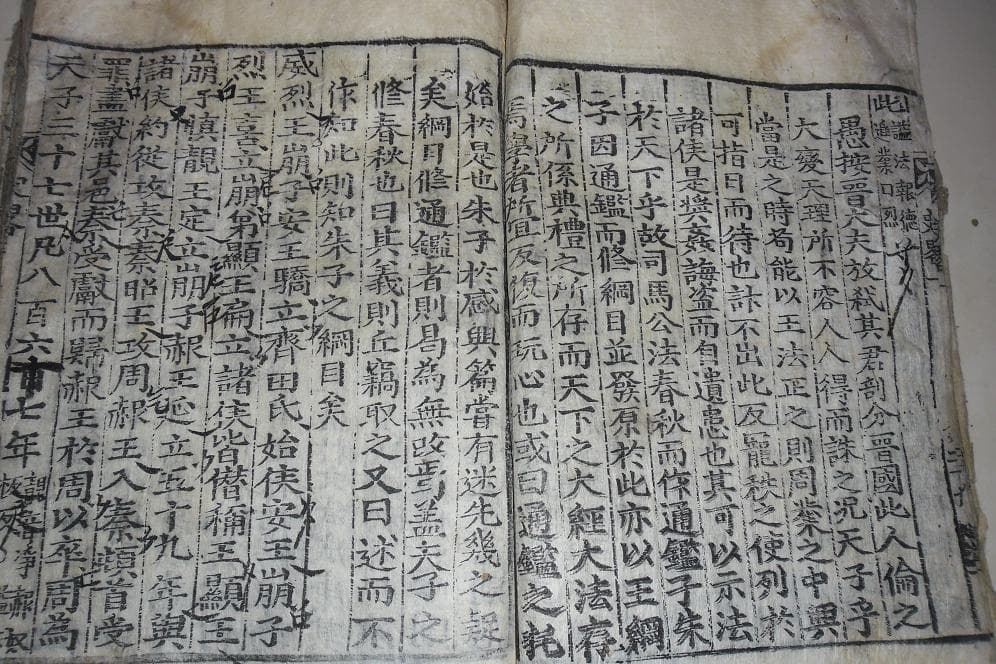 謚法報德
通業曰烈
愚按晉大夫放弒其君剖分晉國此人倫之
大變天理所不容人人得而誅之況天子乎
當是之時苟能以王法正之則周業之中興
可指日而待也計不出此反寵秩之使列於
諸侯是奬姦誨盗而自遺患也其可以示法
於天下乎故司馬公法春秋而作通鑑子朱
子因通鑑而修綱目並發原於此亦以王綱
之所係典禮之所存而天下之大經大法存
焉學者所宜反復而玩心也或曰通鑑之托
始於是也朱子於感興篇當有迷先幾之疑
矣綱目修通鑑者則曷為無改焉蓋夫子之
修春秋也曰其義則丘竊取之又曰述而不
作知此則知朱子之綱目矣
威烈王崩子安王驕立齊田氏始侯安王崩子
烈王喜立崩弟顯王扁立諸侯皆僣稱王顯王
崩子愼靚王定立崩子赧王延立五十九年與
諸侯約從攻秦秦昭王攻周赧王入秦頓首受
罪盡獻其邑秦受獻而歸赧王於周以卒周為
天子三十七世凡八百六十七年